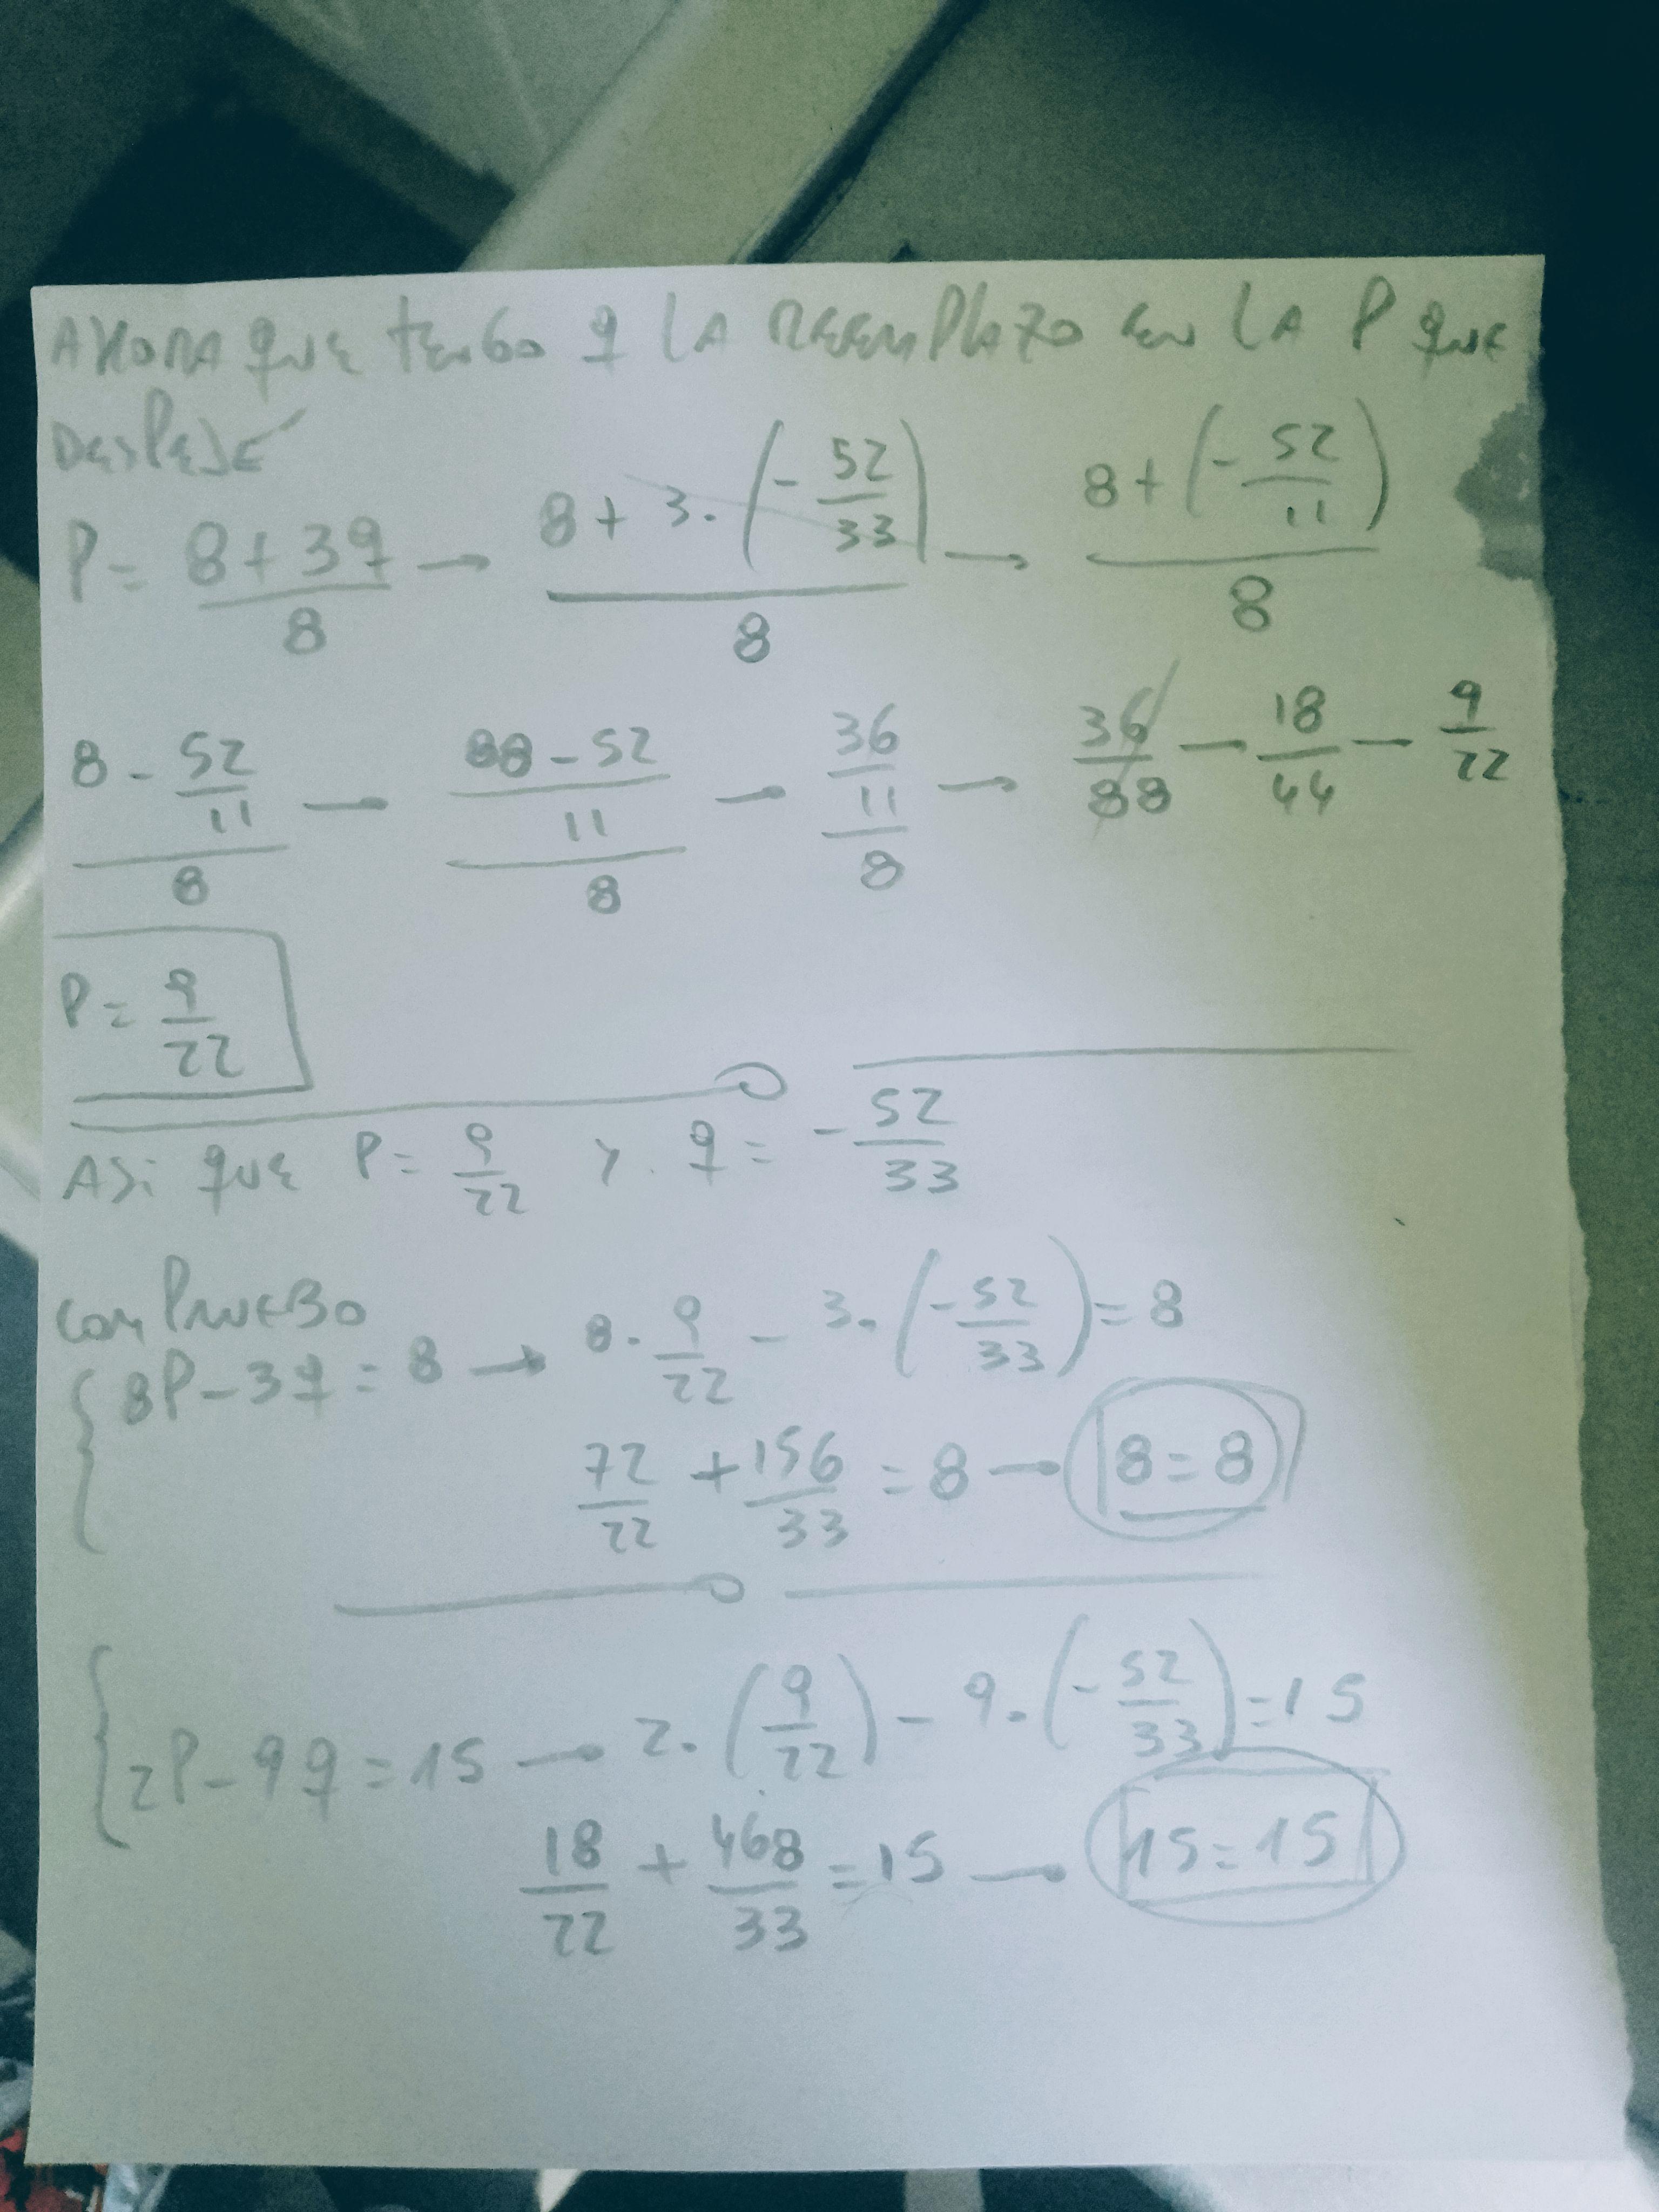 AHORA que tengo q LA REEMPLAZO en LA P que
DESPEJÉ
P = (8 + 3q)/8 → (8 + 3·(-52/33))/8 → (8 + (-52/11))/8
(8 - 52/11)/8 → ((88 - 52)/11)/8 → (36/11)/8 → 36/88 — 18/44 — 9/22
P = 9/22
ASi que P = 9/22 y q = -52/33
COMPRUEBO
8P - 3q = 8 → 8·9/22 - 3·(-52/33) = 8
72/22 + 156/33 = 8 → 8 = 8
2P - 9q = 15 → 2·(9/22) - 9·(-52/33) = 15
18/22 + 468/33 = 15 → 15 = 15